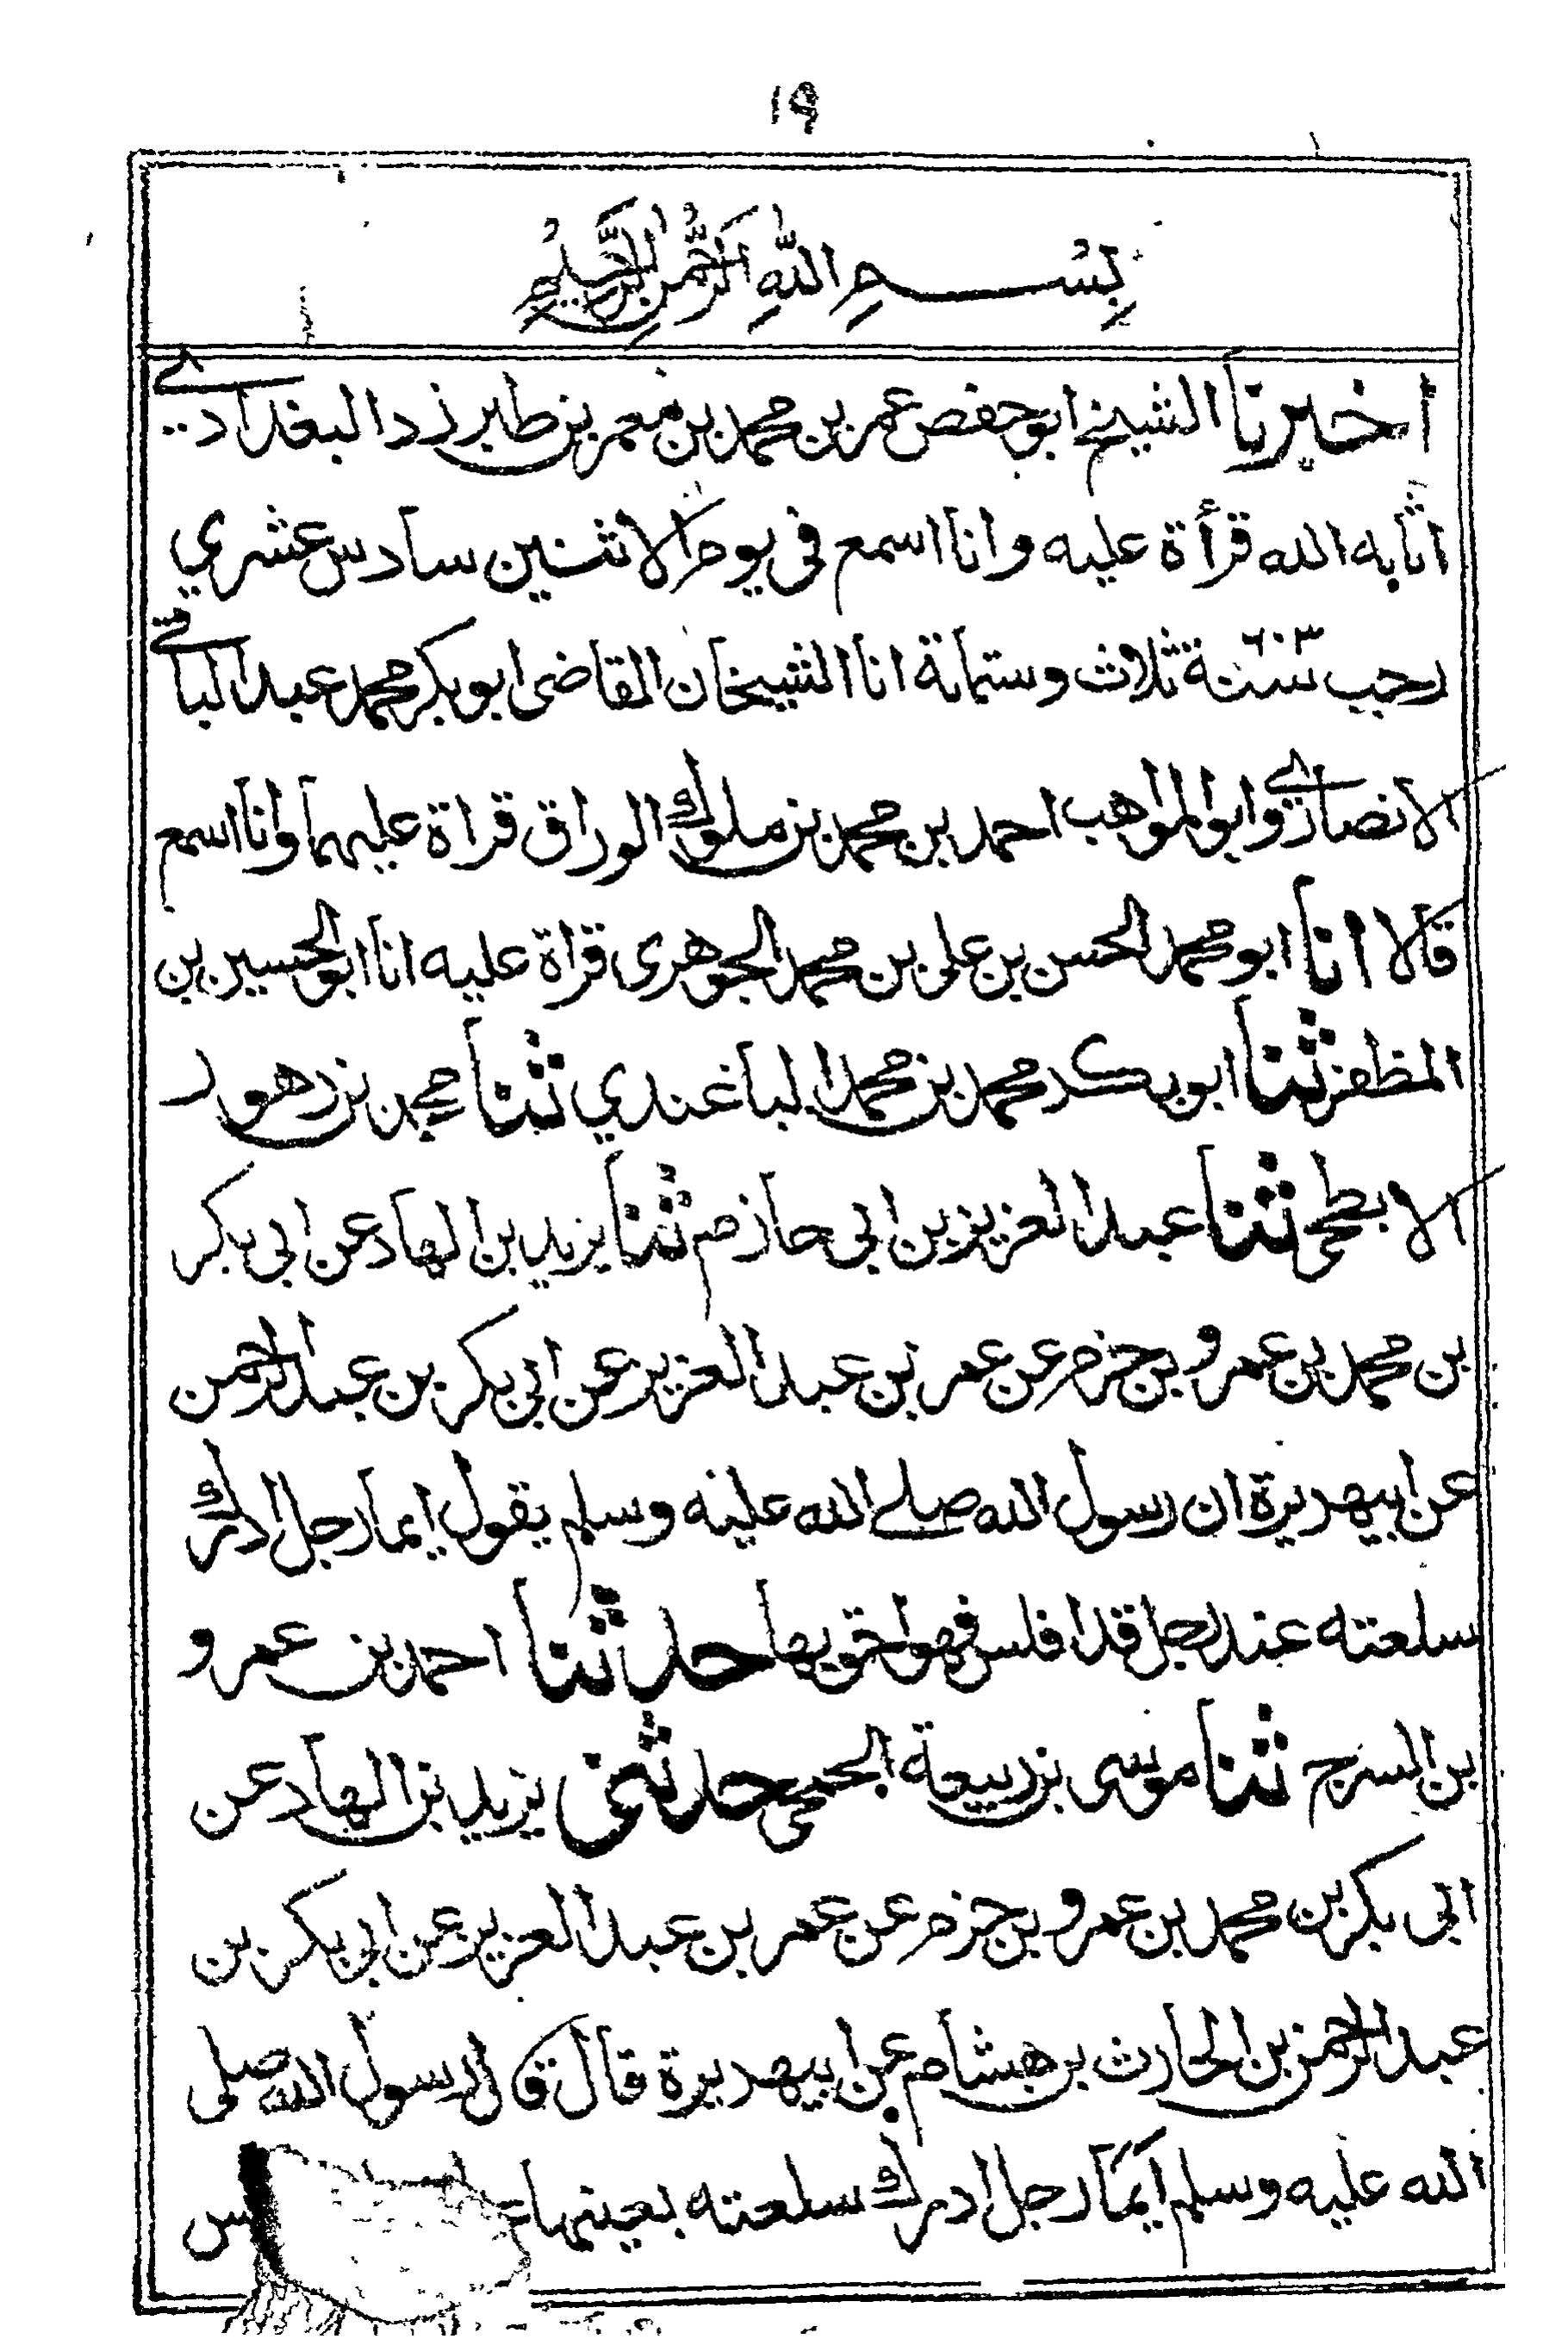 ١٩
بِسْــمِ اللّٰهِ الرَّحْمٰنِ الرَّحِيْمِ
اخبرنا الشيخ ابو حفص عمر بن محمد بن معمر بن طبرزد البغدادي
اثابه الله قرأة عليه وانا اسمع في يوم الاثنين سادس عشري
رجب سنة ٦٠٣ ثلاث وستمائة انا الشيخان القاضي ابو بكر محمد عبد الباقي
الانصاري وابو المواهب احمد بن محمد بن ملوك الوراق قراة عليهما وانا اسمع
قالا انا ابو محمد الحسن بن على بن محمد الجوهرى قراة عليه انا ابو الحسين بن
المظفر ثنا ابو بكر محمد بن محمد الباغندي ثنا محمد بن زهور
الابطحي ثنا عبد العزيز بن ابى حازم ثنا يزيد بن الهاد عن ابى بكر
بن محمد بن عمرو بن حزم عن عمر بن عبد العزيز عن ابى بكر بن عبد الرحمن
عن ابيهريرة ان رسول الله صلے الله عليه وسلم يقول ايما رجل ادرك
سلعته عند رجل قد افلس فهو احق بها حدثنا احمد بن عمرو
بن السرج ثنا موسى بن ربيعة الجمحى حدثنى يزيد بن الهاد عن
ابى بكر بن محمد بن عمرو بن حزم عن عمر بن عبد العزيز عن ابى بكر بن
عبد الرحمن بن الحارث بن هشام عن ابيهريرة قال قال رسول الله صلى
الله عليه وسلم ايّما رجل ادرك سلعته بعينها